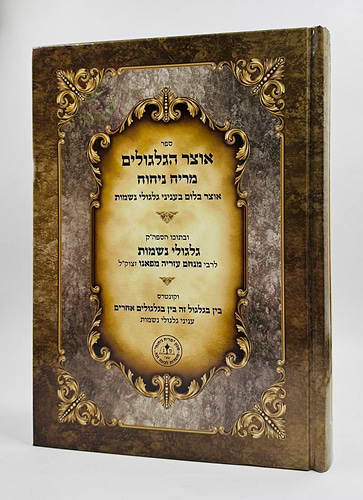 ספר
אוצר הגלגולים
מריח ניחוח
אוצר בלום בעניני גלגולי נשמות
ובתוכו הספה"ק
גלגולי נשמות
לרבי מנחם עזריה מפאנו זצוק"ל
וקונטרס
בין בגלגול זה בין בגלגולים אחרים
עניני גלגולי נשמות